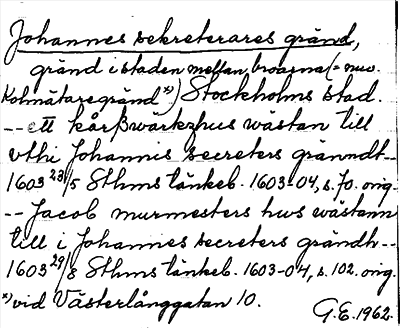 Johannes sekreterares gränd,
gränd i staden mellan broarna (= nuv.
Kolmätaregränd *) Stockholms stad.
-- ett kårßwärkzhus wästan till
vthi Johannis secreters gränndt--
1603 23/5 Sthms tänkeb. 1603-04, s. 70. orig.
-- Jacob murmesters hws wästann
till i Johannes secreters grändh--
1603 29/8 Sthms tänkeb. 1603-04, s. 102. orig.
*) vid Västerlånggatan 10.
G.E. 1962.